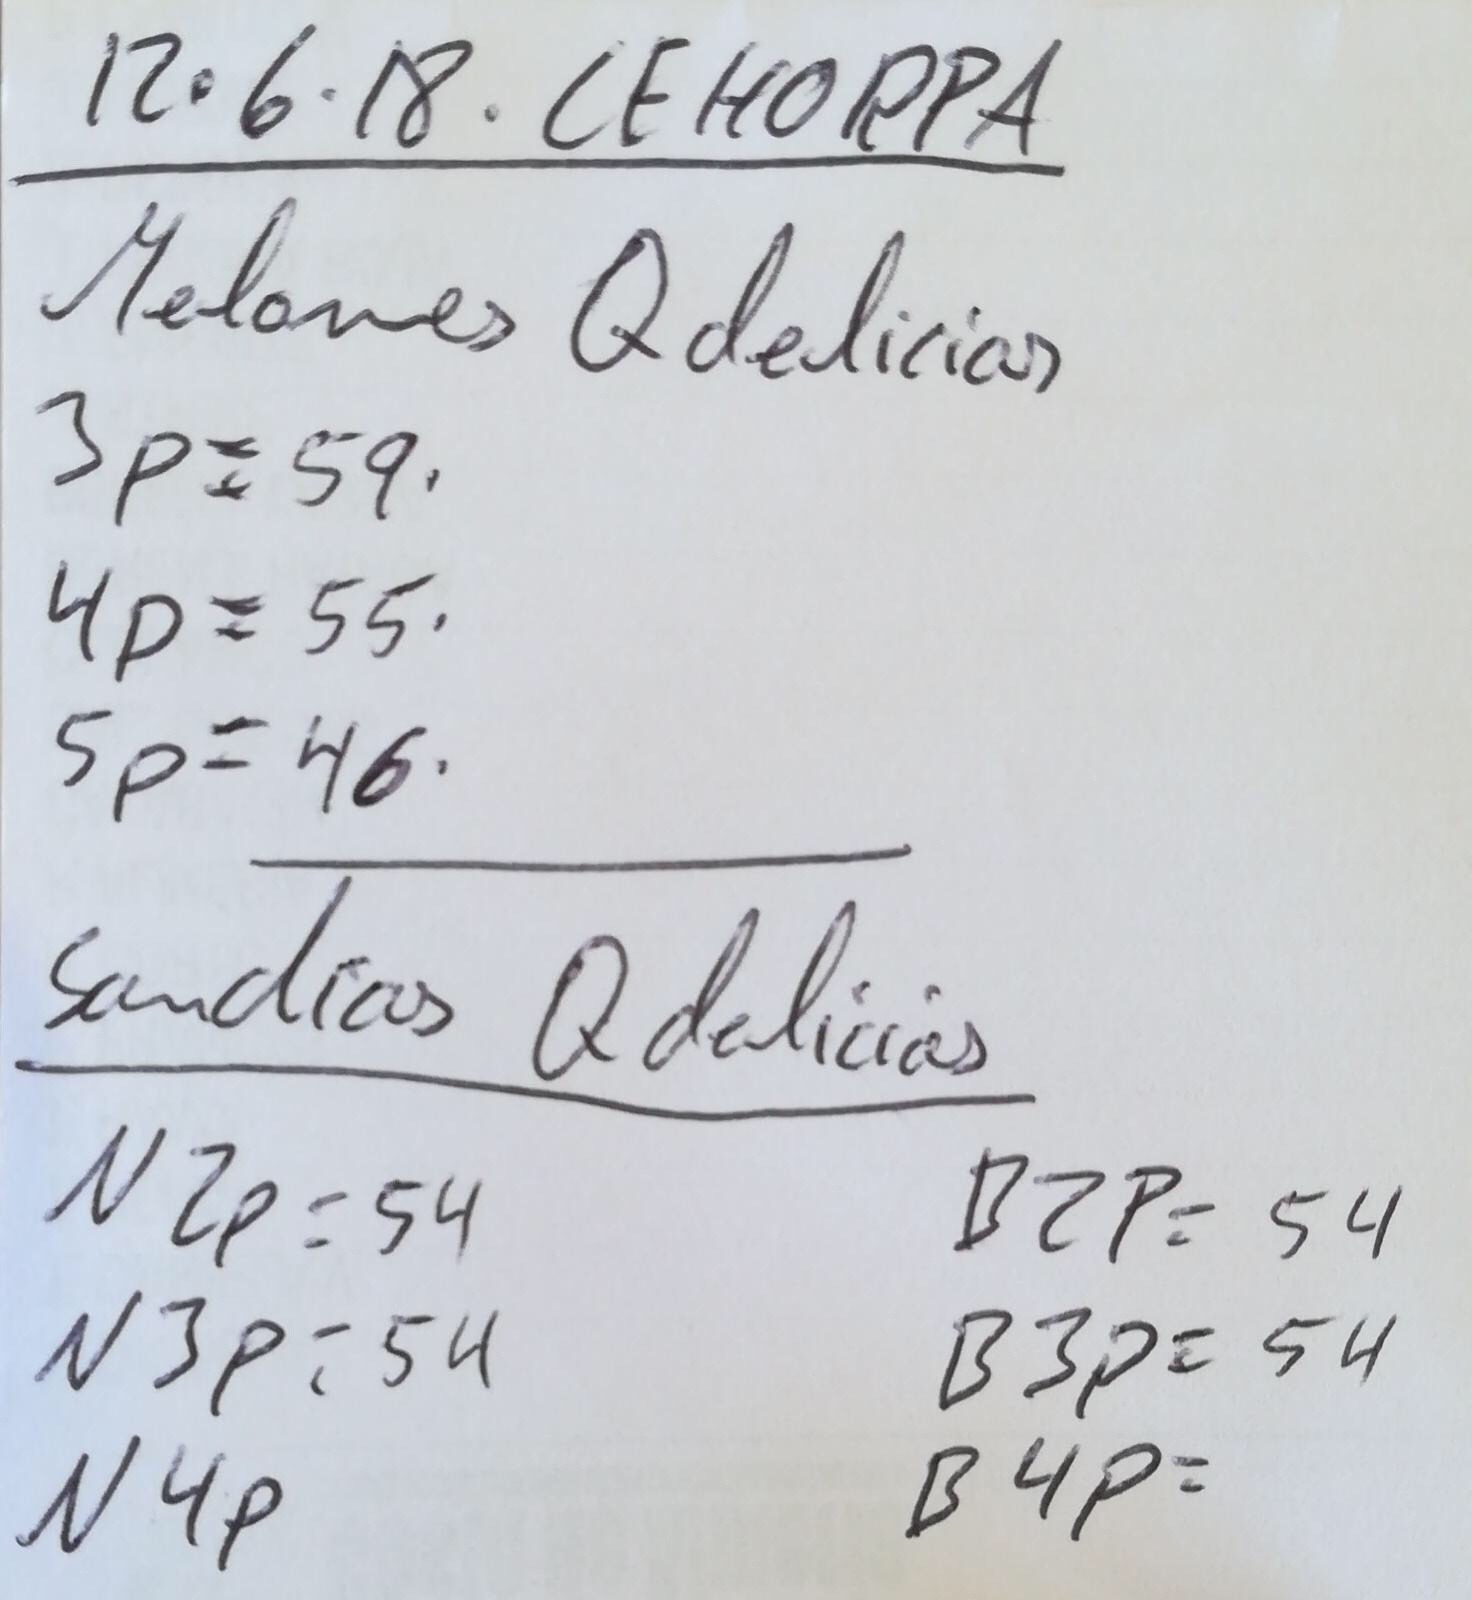 12.6.18. CEHORPA
Melones Qdelicias
3p = 59.
4p = 55.
5p = 46.
Sandias Qdelicias
N 2p = 54 B2P = 54
N 3p = 54 B 3p = 54
N 4p B 4p =